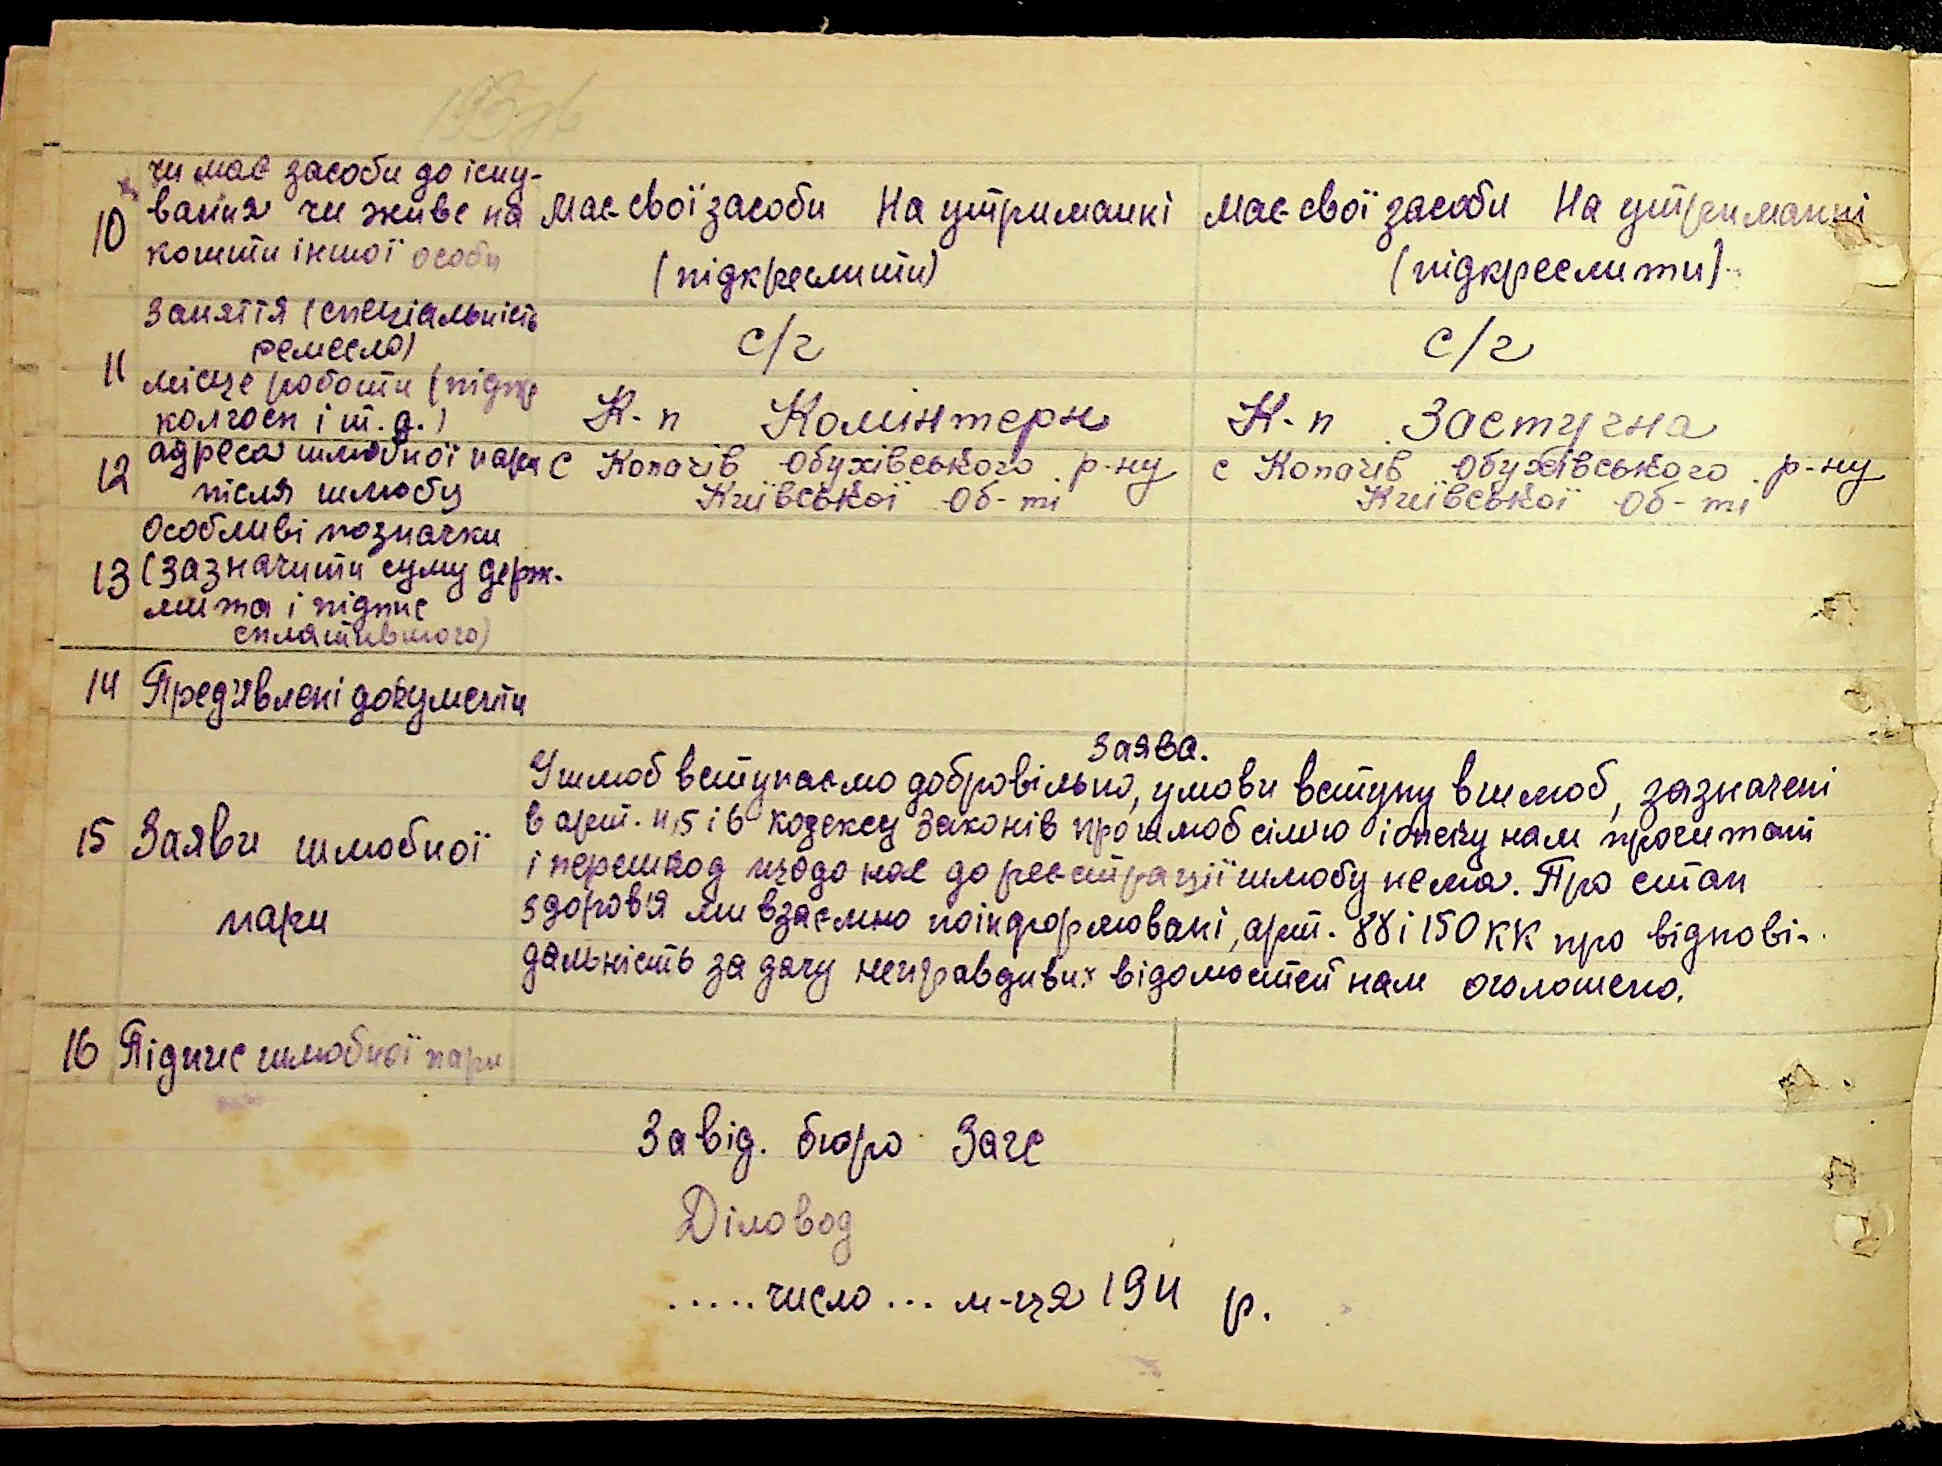 чи має засоби до існу-
10 вання чи живе на
кошти іншої особи
має свої засоби На утриманні
(підкреслити)
має свої засоби На утриманні
(підкреслити)
11 Заняття (спеціальність
ремесло)
с/г
с/г
місце роботи (підпр
колгосп і т. д.)
К-п Комінтерн
К-п Заступна
12 адреса шлюбної пари
після шлюбу
с Копачів Обухівського р-ну
Київської Об-ті
с Копачів Обухівського р-ну
Київської Об-ті
Особливі позначки
13 (зазначити суму держ.
мита і підпис
сплатившого)
14 Пред'явлені документи
15 Заяви шлюбної
пари
Заява.
У шлюб вступаємо добровільно, умови вступу в шлюб, зазначені
в арт. 4,5 і 6 кодексу Законів про шлюб сім'ю і опеку нам прочитані
і перешкод щодо нас до реєстрації шлюбу нема. Про стан
здоров'я ми взаємно поінформовані, арт. 88 і 150 КК про відпові-
дальність за дачу неправдивих відомостей нам оголошено.
16 Підпис шлюбної пари
Завід. бюро Загс
Діловод
..... число ... м-ця 194 р.